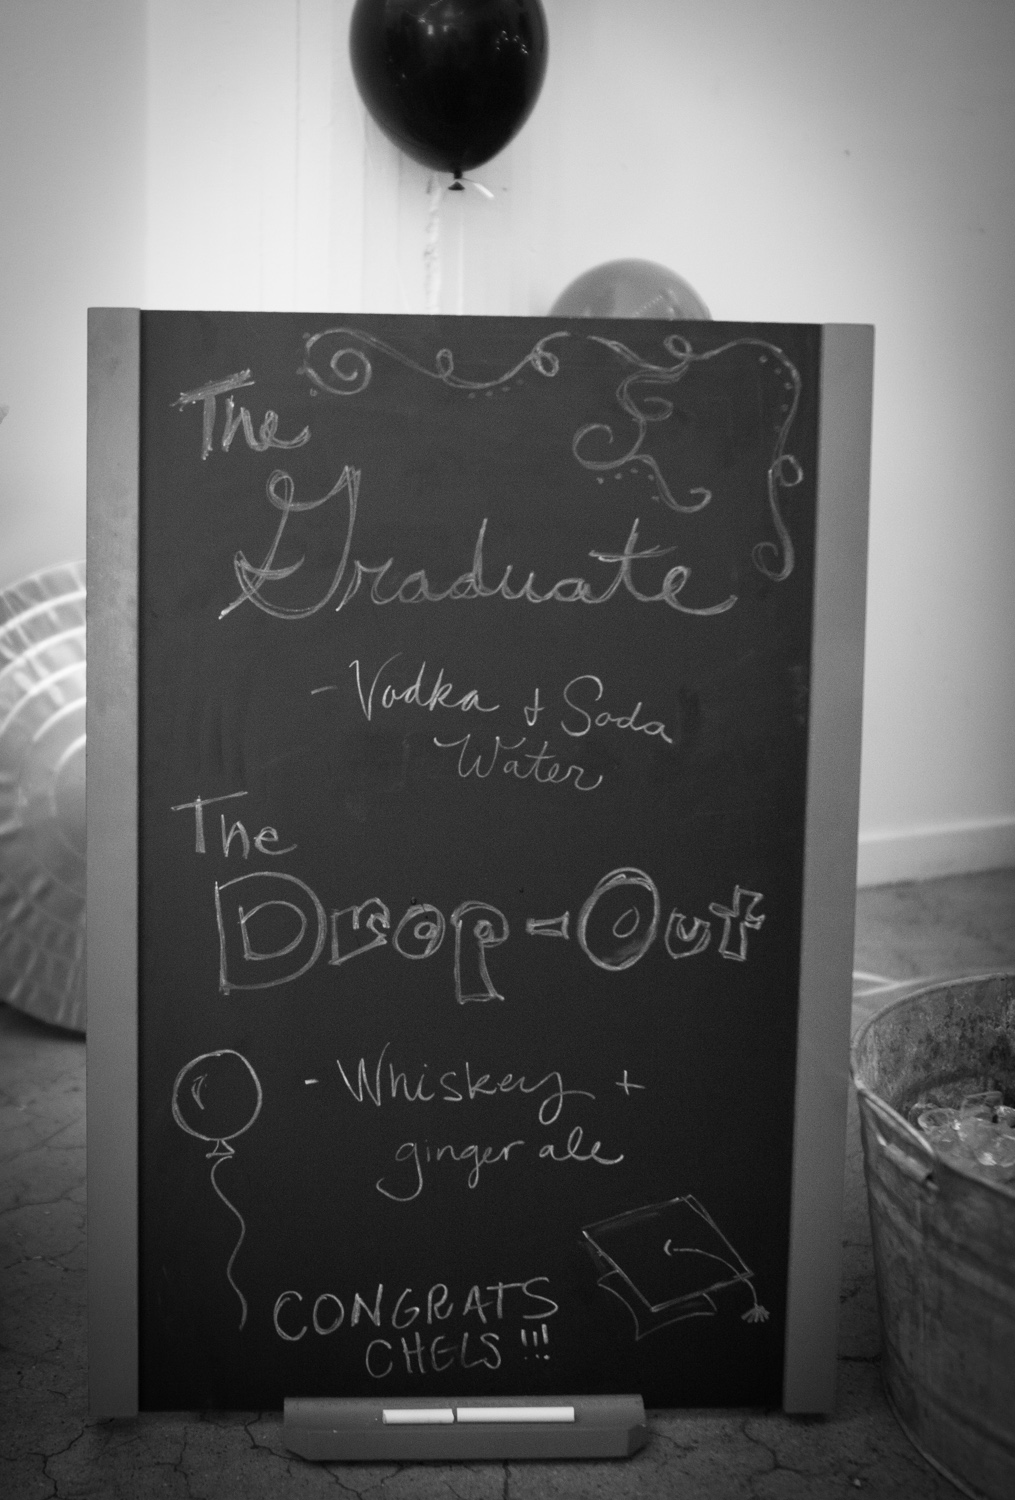 The
Graduate
- Vodka + Soda
Water
The
Drop-Out
- Whiskey +
ginger ale
CONGRATS
CHELS !!!